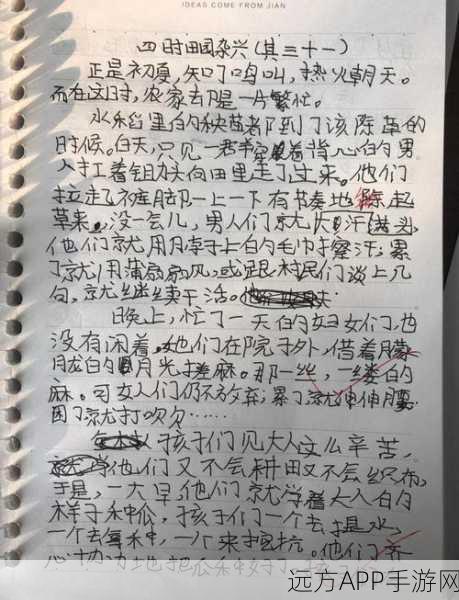 IDEAS COME FROM JIAN
四时田园杂兴(其三十一)
正是初夏,知了鸣叫,热火朝天。
而在这时,农家却是一片繁忙。
水稻里的秧苗都到了该除草的
时候。白天,只见一群穿着背心的男
人扛着锄头向田里走了过来。他们
拉起裤脚一上一下有节奏地除起
草来。没一会儿,男人们就大汗满头,
他们就用脖子上的毛巾擦汗;累
了就用蒲扇扇风,或跟村民们谈上几
句,就继续干活。
晚上,忙了一天的妇女们,也
没有闲着,她们在院子外,借着朦
胧的月光搓麻。那一丝,一缕的
麻。可女人们仍不放弃;累了就伸伸腰
困了就打哈欠……
孩子们见大人这么辛苦,
他们又不会耕田又不会织布,
于是,一大早,他们就学着大人的
样子种瓜,孩子们一个去提水,
一个去种,一个来挖坑。他们齐
心协力地把瓜种好了
远方APP手游网